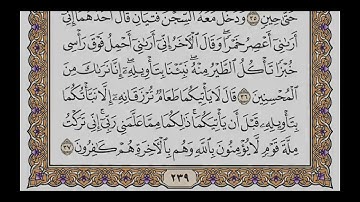 حَتَّىٰ حِينٍ ٣٥ وَدَخَلَ مَعَهُ ٱلسِّجْنَ فَتَيَانِ قَالَ أَحَدُهُمَآ إِنِّىٓ
أَرَىٰنِىٓ أَعْصِرُ خَمْرًا وَقَالَ ٱلْـَٔاخَرُ إِنِّىٓ أَرَىٰنِىٓ أَحْمِلُ فَوْقَ رَأْسِى
خُبْزًا تَأْكُلُ ٱلطَّيْرُ مِنْهُ نَبِّئْنَا بِتَأْوِيلِهِۦٓ إِنَّا نَرَىٰكَ مِنَ
ٱلْمُحْسِنِينَ ٣٦ قَالَ لَا يَأْتِيكُمَا طَعَامٌ تُرْزَقَانِهِۦٓ إِلَّا نَبَّأْتُكُمَا
بِتَأْوِيلِهِۦ قَبْلَ أَن يَأْتِيَكُمَا ذَٰلِكُمَا مِمَّا عَلَّمَنِى رَبِّىٓ إِنِّى تَرَكْتُ
مِلَّةَ قَوْمٍ لَّا يُؤْمِنُونَ بِٱللَّهِ وَهُم بِٱلْـَٔاخِرَةِ هُمْ كَـٰفِرُونَ ٣٧
٢٣٩